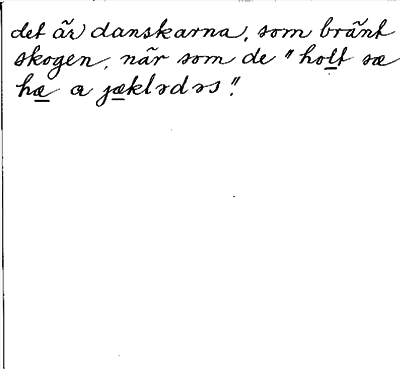 det är danskarna, som bränt
skogen, när som de "hol̲t sæ
hæ̲ a jæ̲klədəs".